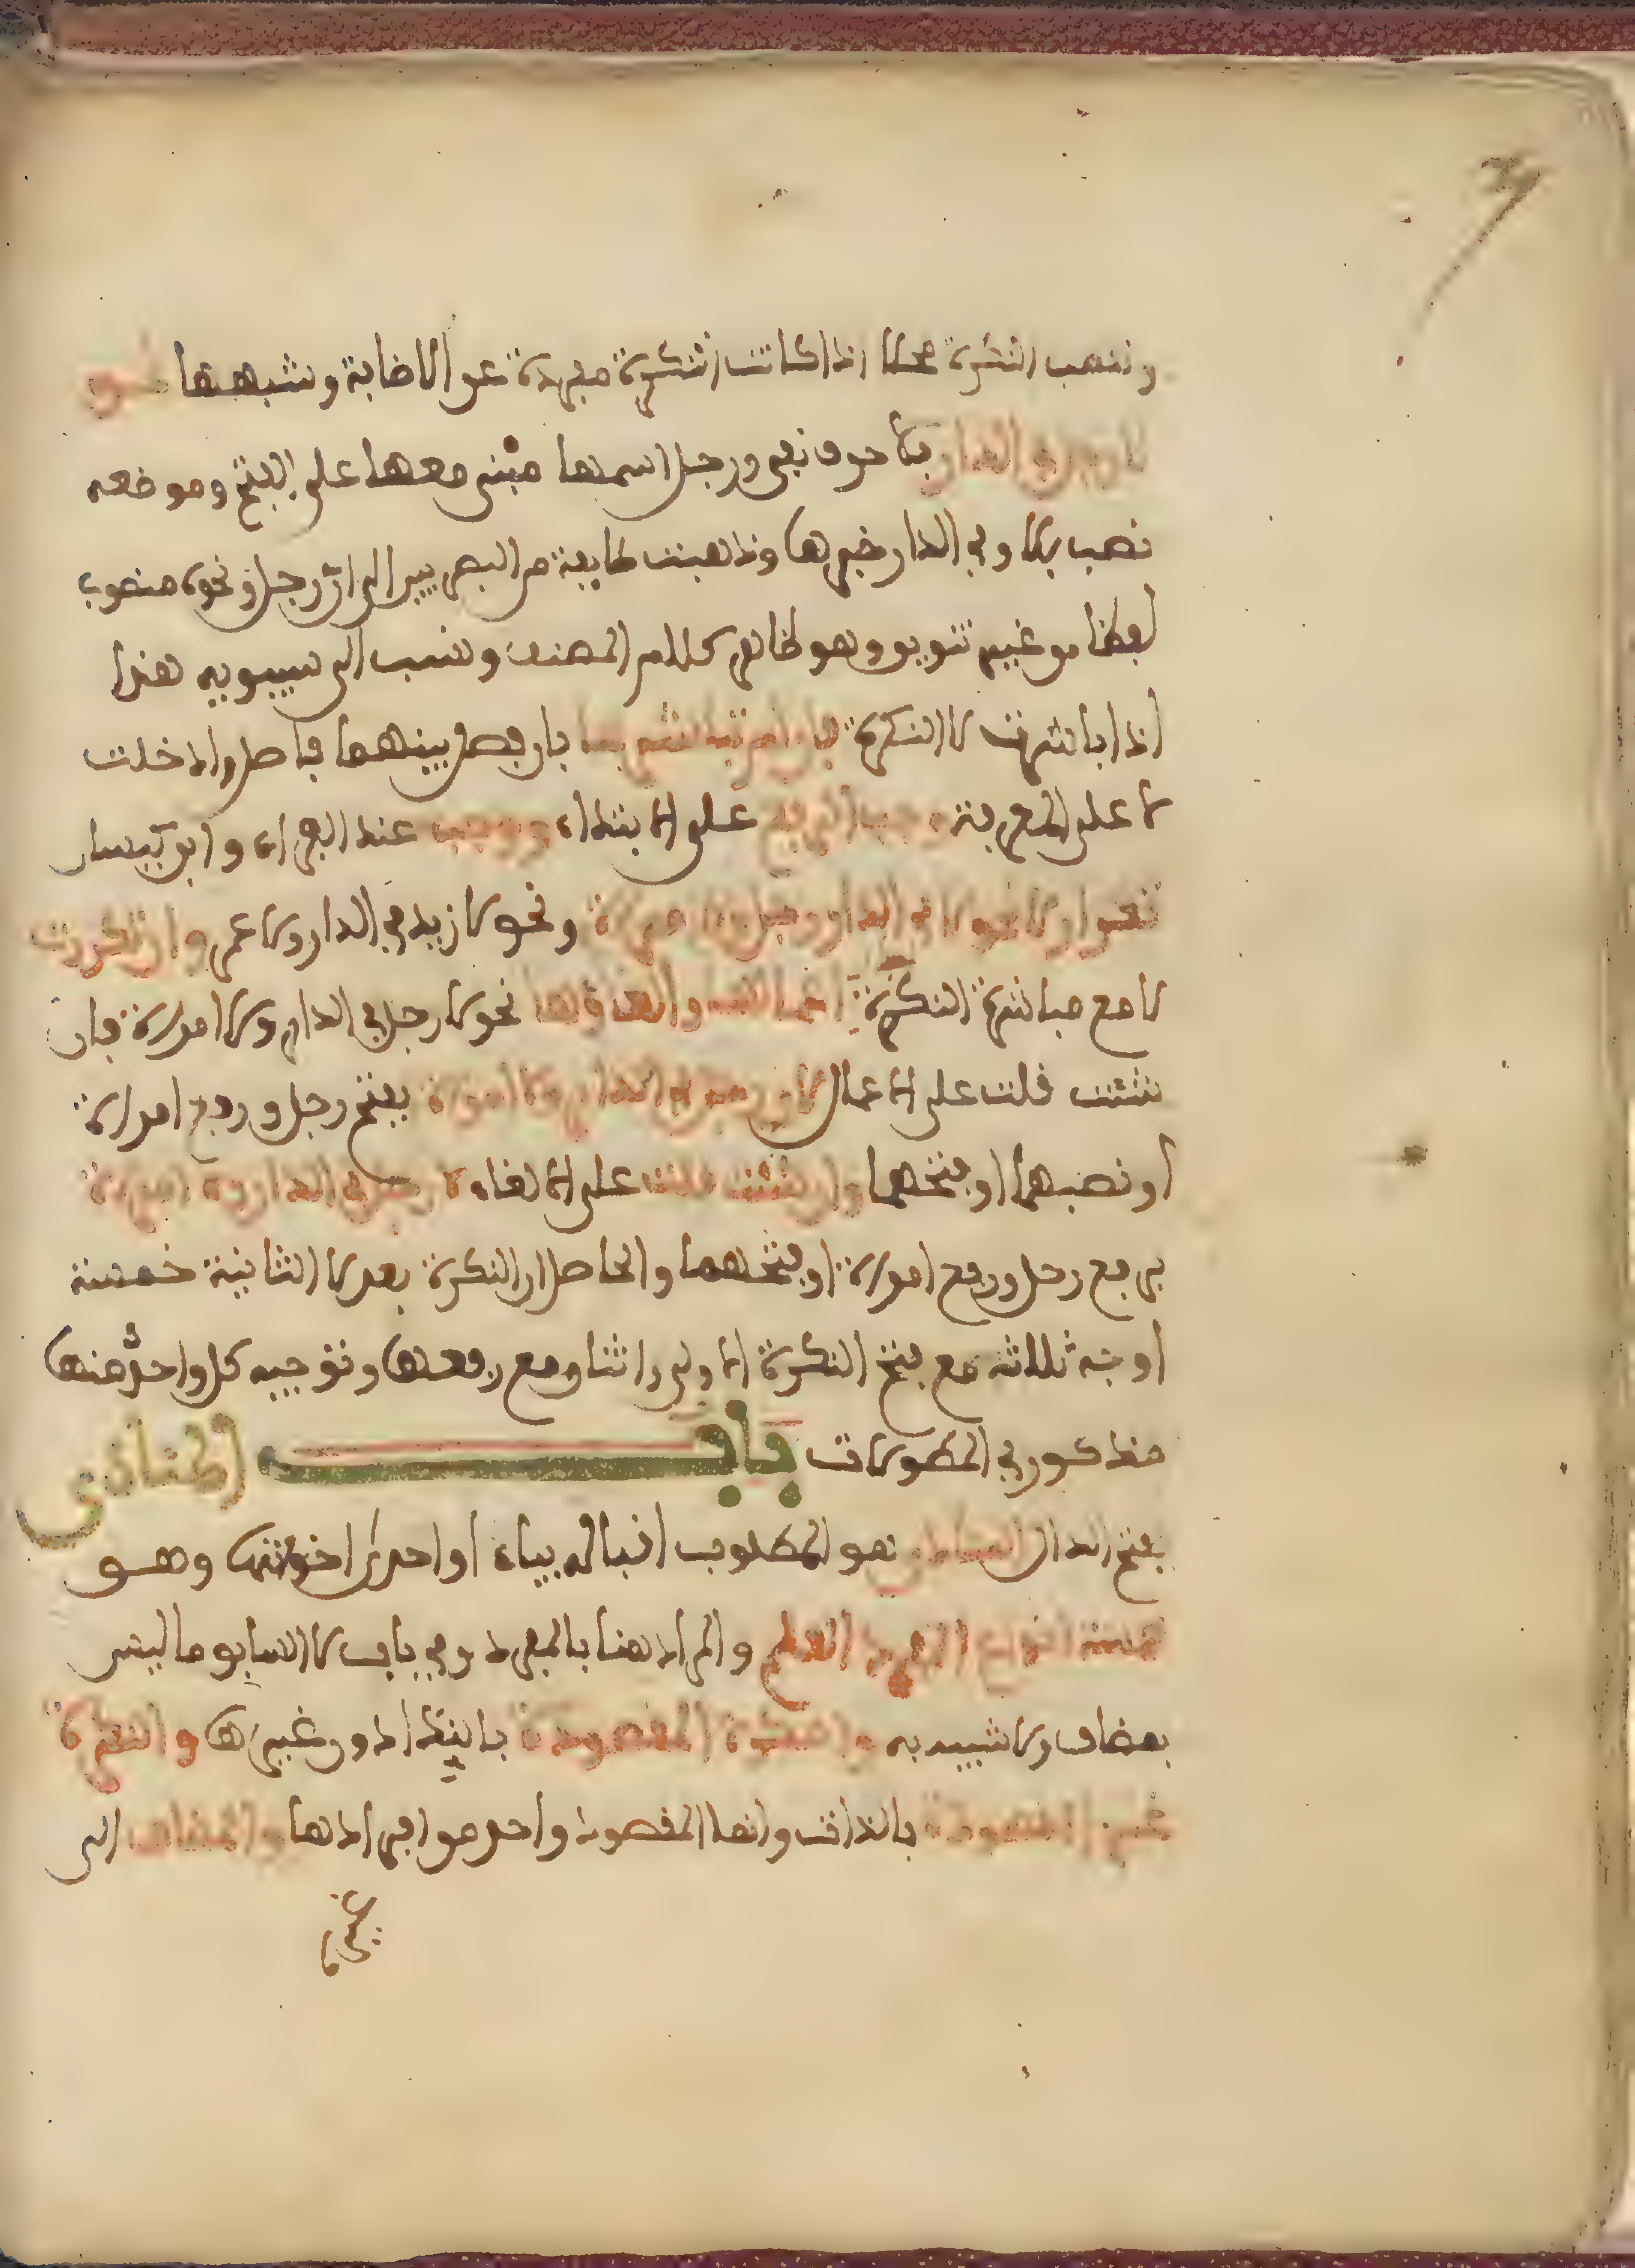 وتنصب النكرة محلا اذا كانت النكرة مفردة عن الاضافة وشبهها نحو
لا رجل في الدار فلا حرف نفي ورجل اسمها مبني معها على الفتح وموضعه
نصب بلا وفي الدار خبرها وذهبت طايفة من البصريين الى ان رجل ونحوه منصوب
لفظا من غير تنوين وهو ظاهر كلام المصنف ونسب الى سيبويه هذا
اذا باشرت لا النكرة فان لم تباشرها بان فصل بينهما فاصل او دخلت
لا على المعرفة وجب الرفع على الابتداء ووجب عند الفراء وابن كيسان
تكرار لا نحو لا في الدار رجل ولا امراة ونحو لا زيد في الدار ولا عمر وان تكررت
لا مع مباشرة النكرة جاز اعمالها والغاؤها نحو لا رجل في الدار ولا امراة فان
شئت قلت على الاعمال لا رجل في الدار ولا امراة بفتح رجل ورفع امراة
او نصبها او فتحها وان شئت قلت على الالغاء لا رجل في الدار ولا امراة
برفع رجل ورفع امراة او فتحها والحاصل ان النكرة بعد لا الثانية خمسة
اوجه ثلاثه مع فتح النكرة الاولى واثنان مع رفعها وتوجيه كل واحد منها
مذكور في المطولات باب المنادى
بفتح الدال المنادى هو المطلوب اقباله بياء او احدى اخواتها وهو
خمسة انواع المفرد العلم والمراد هنا بالمفرد وفي باب لا السابق ما ليس
بمضاف ولا شبيه به والنكرة المقصودة بالنداء دون غيرها والنكرة
غير المقصودة بالذات وانما المقصود واحد من افرادها والمضاف الى
غيره